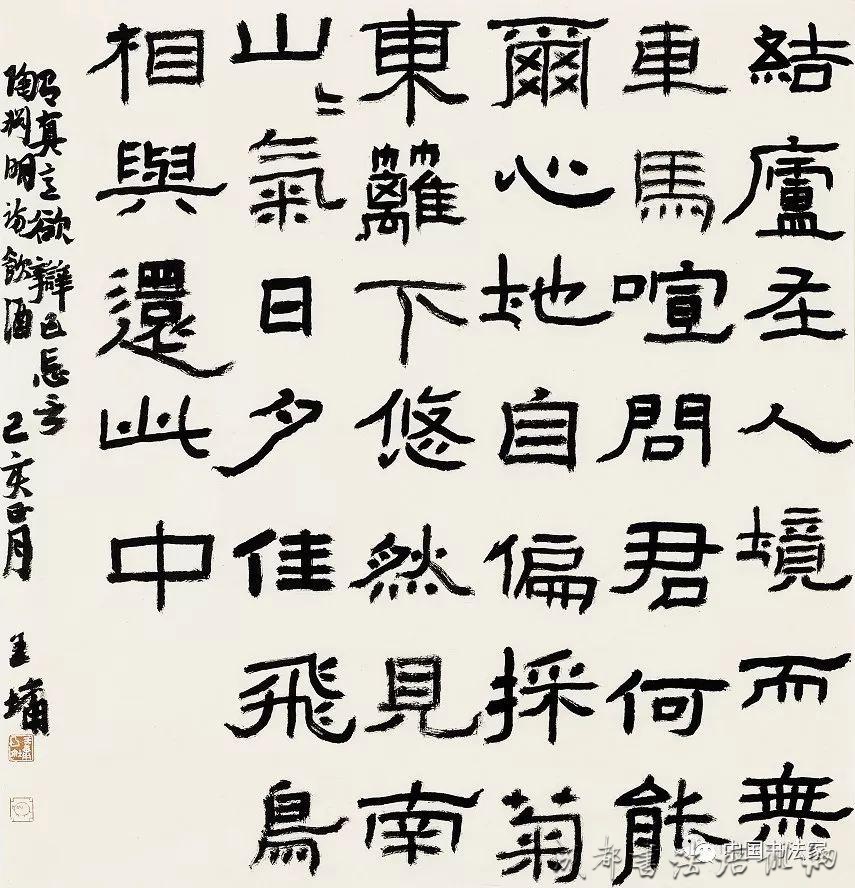 結廬在人境而無
車馬喧問君何能
爾心地自偏採菊
東籬下悠然見南
山〻氣日夕佳飛鳥
相與還此中
有真意欲辯已忘言
陶淵明詩飲酒 己亥正月 王鏞
中国书法家